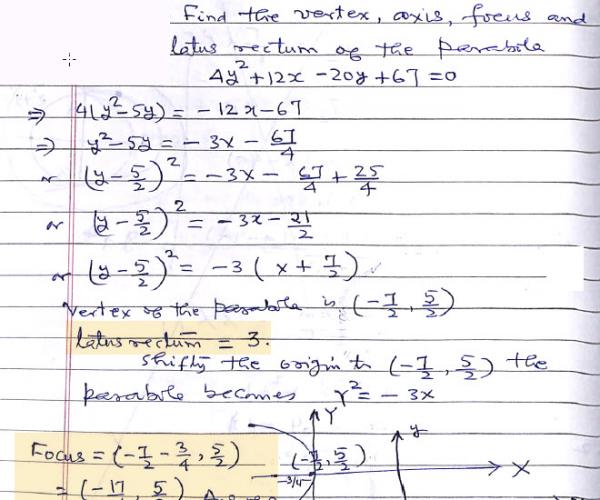 Find the vertex, axis, focus and
latus rectum of the parabola
4y²+12x-20y+67=0
⇒ 4(y²-5y) = -12x-67
⇒ y²-5y = -3x - 67/4
or (y-5/2)² = -3x - 67/4 + 25/4
or (y-5/2)² = -3x - 21/2
or (y-5/2)² = -3(x+7/2)
vertex of the parabola is (-7/2, 5/2)
latus rectum = 3.
Shifting the origin to (-7/2, 5/2) the
parabola becomes Y² = -3x
Y
y
Focus = (-7/2 - 3/4, 5/2)
(-7/2, 5/2)
-3/4
X
= (-17/ , 5/ )